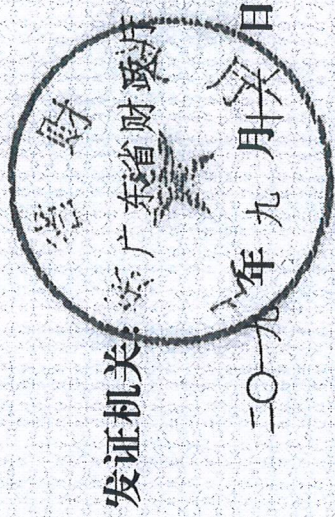 发证机关：广东省财政厅
二〇一九年九月十六日